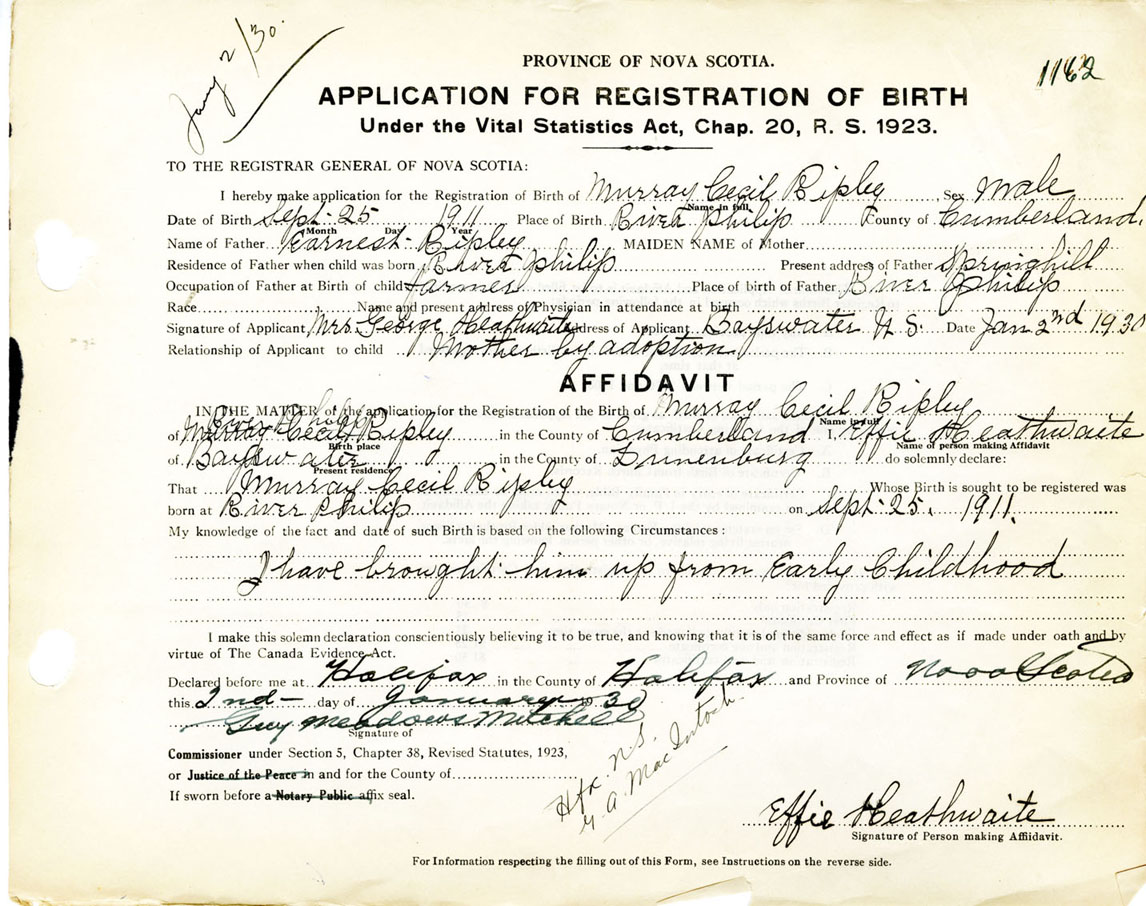 Jany 2/30.
PROVINCE OF NOVA SCOTIA.
1162
APPLICATION FOR REGISTRATION OF BIRTH
Under the Vital Statistics Act, Chap. 20, R. S. 1923.
TO THE REGISTRAR GENERAL OF NOVA SCOTIA:
I hereby make application for the Registration of Birth of Murray Cecil Ripley Sex Male
Name in full
Date of Birth Sept. 25 1911 Place of Birth River Philip County of Cumberland.
Month Day Year
Name of Father Earnest Ripley MAIDEN NAME of Mother
Residence of Father when child was born River Philip Present address of Father Springhill
Occupation of Father at Birth of child farmer Place of birth of Father River Philip
Race Name and present address of Physician in attendance at birth
Signature of Applicant Mrs George Heathwaite Address of Applicant Bayswater N.S. Date Jan 2nd 1930
Relationship of Applicant to child Mother by adoption
AFFIDAVIT
IN THE MATTER of the application for the Registration of the Birth of Murray Cecil Ripley
Name in full
River Philip
of Murray Cecil Ripley in the County of Cumberland I, Effie Heathwaite
Birth place Name of person making Affidavit
of Bayswater in the County of Lunenburg do solemnly declare:
Present residence
That Murray Cecil Ripley Whose Birth is sought to be registered was
born at River Philip on Sept. 25. 1911.
My knowledge of the fact and date of such Birth is based on the following Circumstances:
I have brought him up from Early Childhood
I make this solemn declaration conscientiously believing it to be true, and knowing that it is of the same force and effect as if made under oath and by
virtue of The Canada Evidence Act.
Declared before me at Halifax in the County of Halifax and Province of Nova Scotia
this 2nd day of January 1930
Guy Meadows Mitchell
Signature of
Commissioner under Section 5, Chapter 38, Revised Statutes, 1923,
or Justice of the Peace in and for the County of
If sworn before a Notary Public affix seal.
Hfx. N.S.
G. A. MacIntosh.
Effie Heathwaite
Signature of Person making Affidavit.
For Information respecting the filling out of this Form, see Instructions on the reverse side.